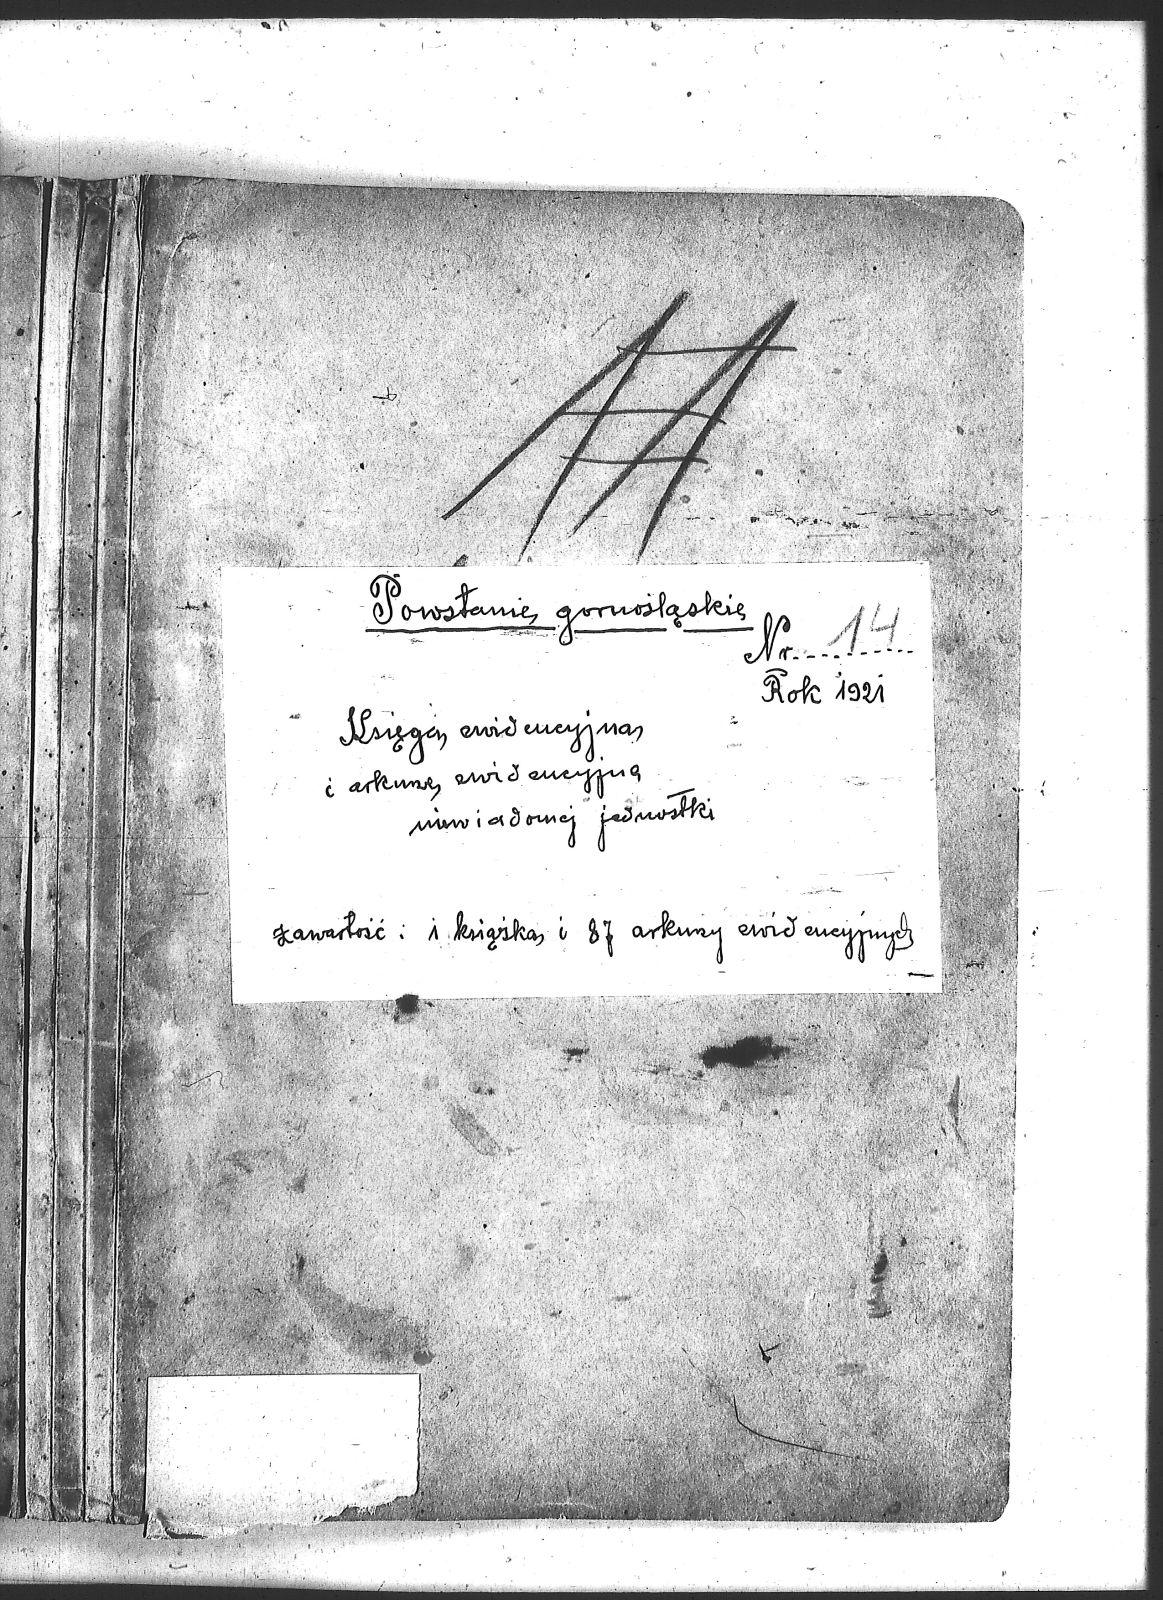 Powstanie górnośląskie
Nr. 14
Rok 1921
Księga ewidencyjna
i arkusze ewidencyjne
niewiadomej jednostki
zawartość: 1 książka i 87 arkuszy ewidencyjnych